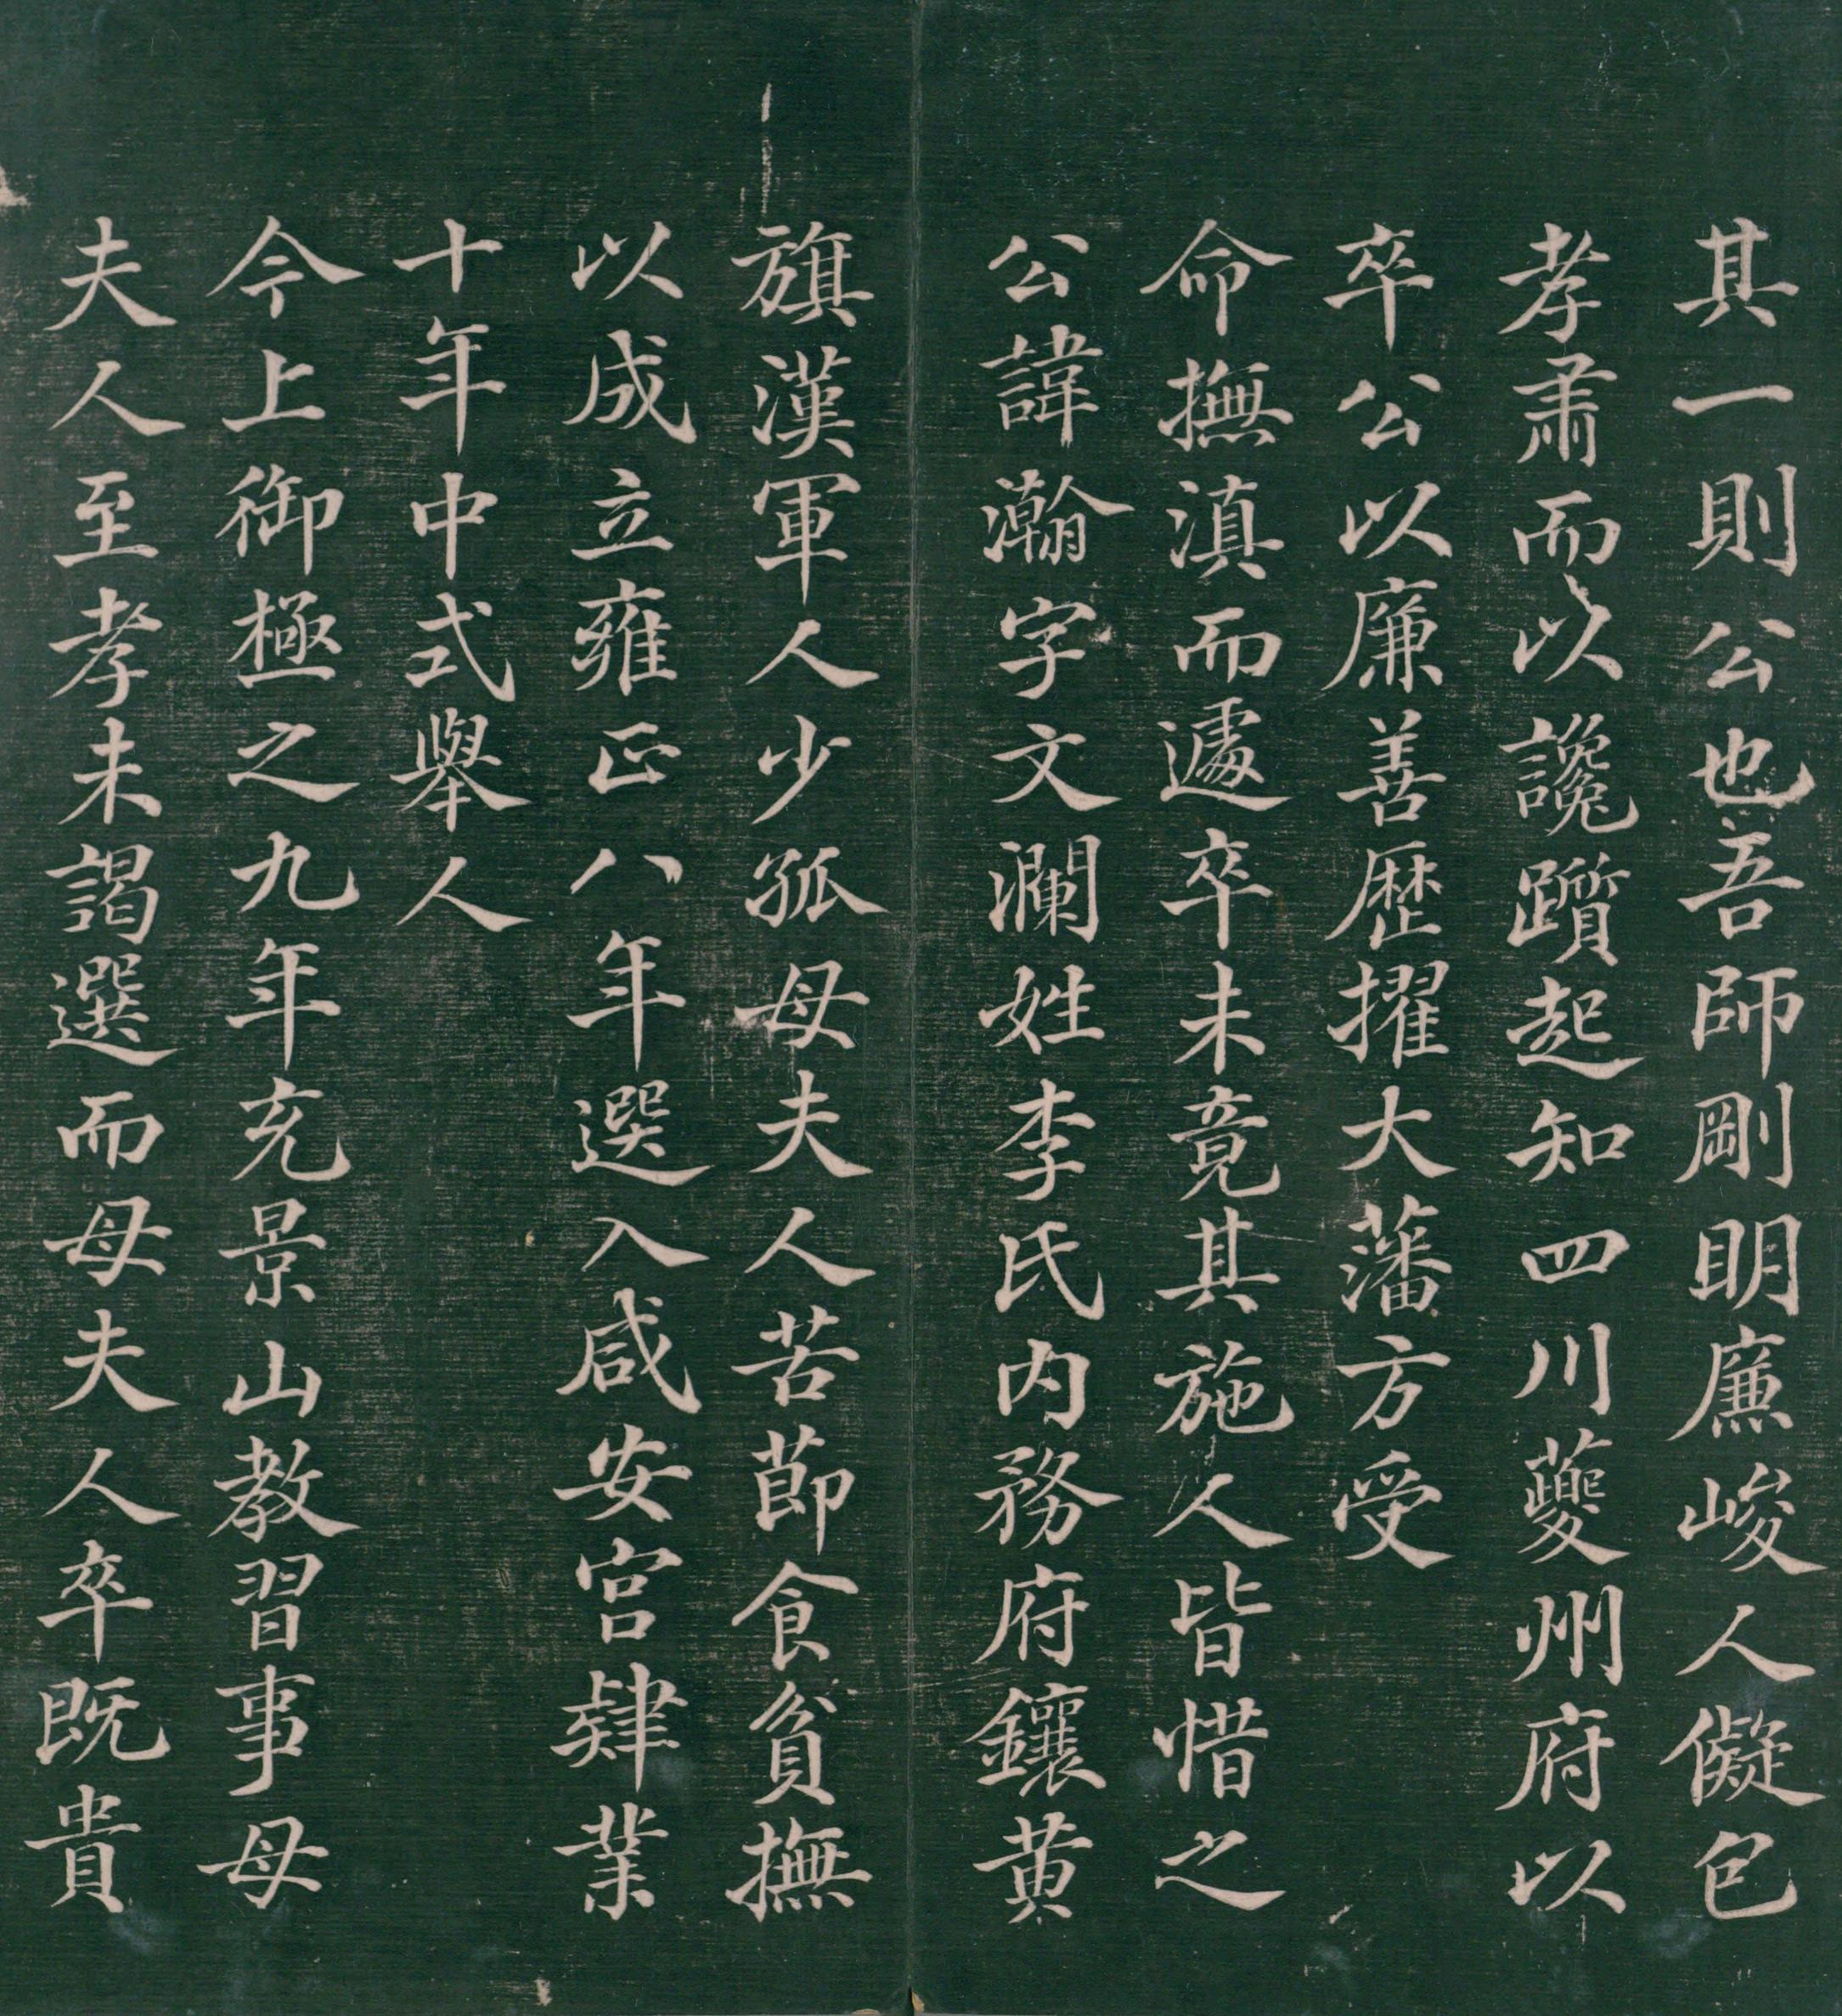 其一則公也吾師剛明廉峻人儗包
孝肅而以讒躓起知四川夔州府以
卒公以廉善歷擢大藩方受
命撫滇而遽卒未竟其施人皆惜之
公諱瀚字文瀾姓李氏内務府鑲黄
旗漢軍人少孤母夫人苦節食貧撫
以成立雍正八年選入咸安宮肄業
十年中式舉人
今上御極之九年充景山教習事母
夫人至孝未謁選而母夫人卒既貴